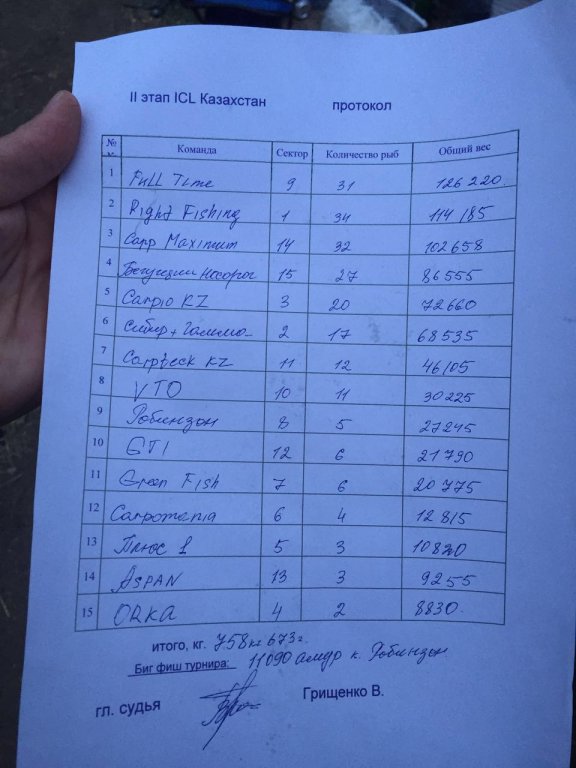 II этап ICL Казахстан протокол
№ Команда Сектор Количество рыб Общий вес
1 Full Time 9 31 126 220
2 Right Fishing 1 34 114 185
3 Carp Maximum 14 32 102658
4 Бегущий Носорог 15 27 86555
5 Carpio KZ 3 20 72660
6 Сибир + 2 17 68535
7 Carpteck KZ 11 12 46105
8 VTO 10 11 30225
9 Робинзон 8 5 27245
10 GTI 12 6 21790
11 Green Fish 7 6 20775
12 Carpomania 6 4 12815
13 Плюс 1 5 3 10820
14 ASPAN 13 3 9255
15 ORKA 4 2 8830.
итого, кг. 758кг 673г.
Биг фиш турнира: 11090 амур к. Робинзон
гл. судья Грищенко В.